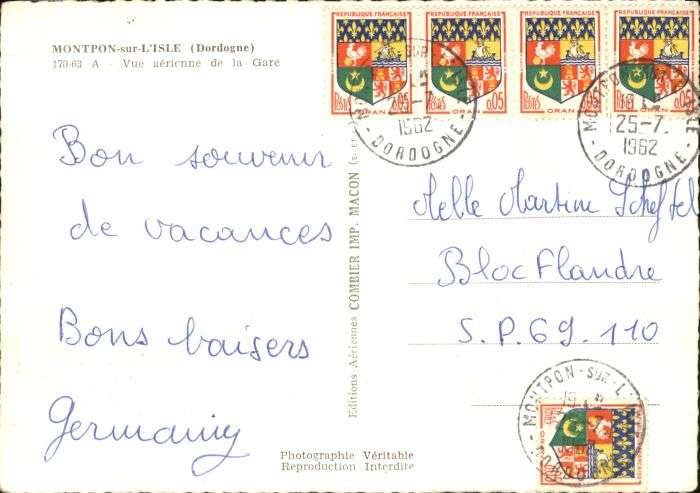 MONTPON-sur-L'ISLE (Dordogne)
170-63 A - Vue aérienne de la Gare
Bon souvenir
de vacances
Bons baisers
Germaing
Editions Aériennes COMBIER IMP. MACON
Photographie Véritable
Reproduction Interdite
REPUBLIQUE FRANÇAISE
POSTES 0,05
ORAN
REPUBLIQUE FRANÇAISE
ORAN
0,05
REPUBLIQUE FRANÇAISE
POSTES 0,05
ORAN
REPUBLIQUE FRANÇAISE
POSTES 0,05
25-7
1962
DORDOGNE
25-7.
1962
DORDOGNE
Melle Martine
Bloc Flandre
S.P.69.110
MONTPON-SUR-L'
DORDOGNE